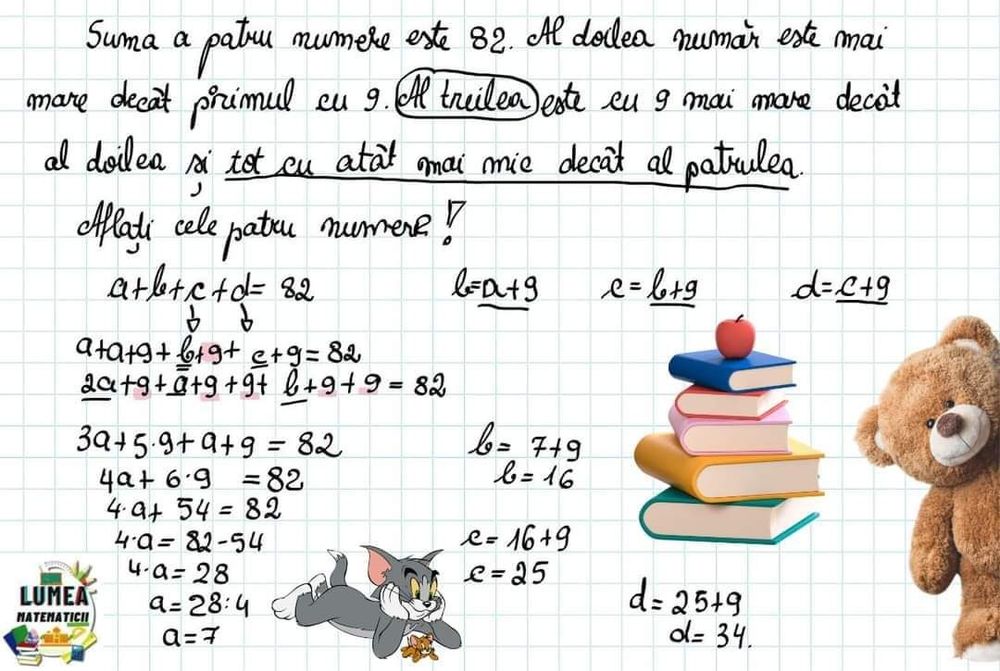 Suma a patru numere este 82. Al doilea număr este mai
mare decât primul cu 9. Al treilea este cu 9 mai mare decât
al doilea și tot cu atât mai mic decât al patrulea.
Aflați cele patru numere!
a+b+c+d= 82 b=a+9 c=b+9 d=c+9
a+a+9+b+9+ c+9=82
2a+9+a+9+9+ b+9+9=82
3a+5·9+a+9=82
4a+ 6·9 =82
4·a+ 54=82
4·a=82-54
4·a=28
a=28:4
a=7
b= 7+9
b=16
c=16+9
c=25
d=25+9
d= 34.
LUMEA
MATEMATICII